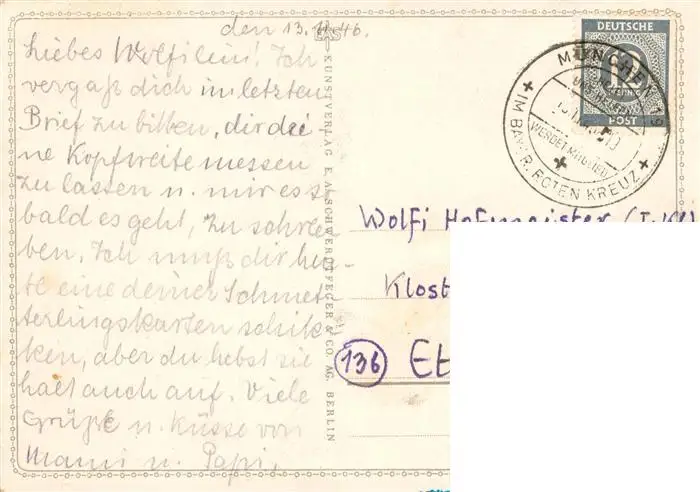 den 13. 11. 46.
Liebes Wolfilein! Ich
vergaß dich im letzten
Brief zu bitten, dir dei-
ne Kopfweite messen
zu lassen u. mir es s
bald es geht, zu schrei-
ben. Ich muß dir heu-
te eine deiner Schmet-
terlingskarten schik-
ken, aber du hebst sie
halt auch auf. Viele
Grüße u. Küsse von
Mami u. Papi.
KUNSTVERLAG E. A. SCHWERDTFEGER & CO. AG. BERLIN
DEUTSCHE
12
PFENNIG
POST
MÜNCHEN
WERDET MITGLIED
IM BAYR. ROTEN KREUZ
Wolfi Hofmeister
Klost
136
Et